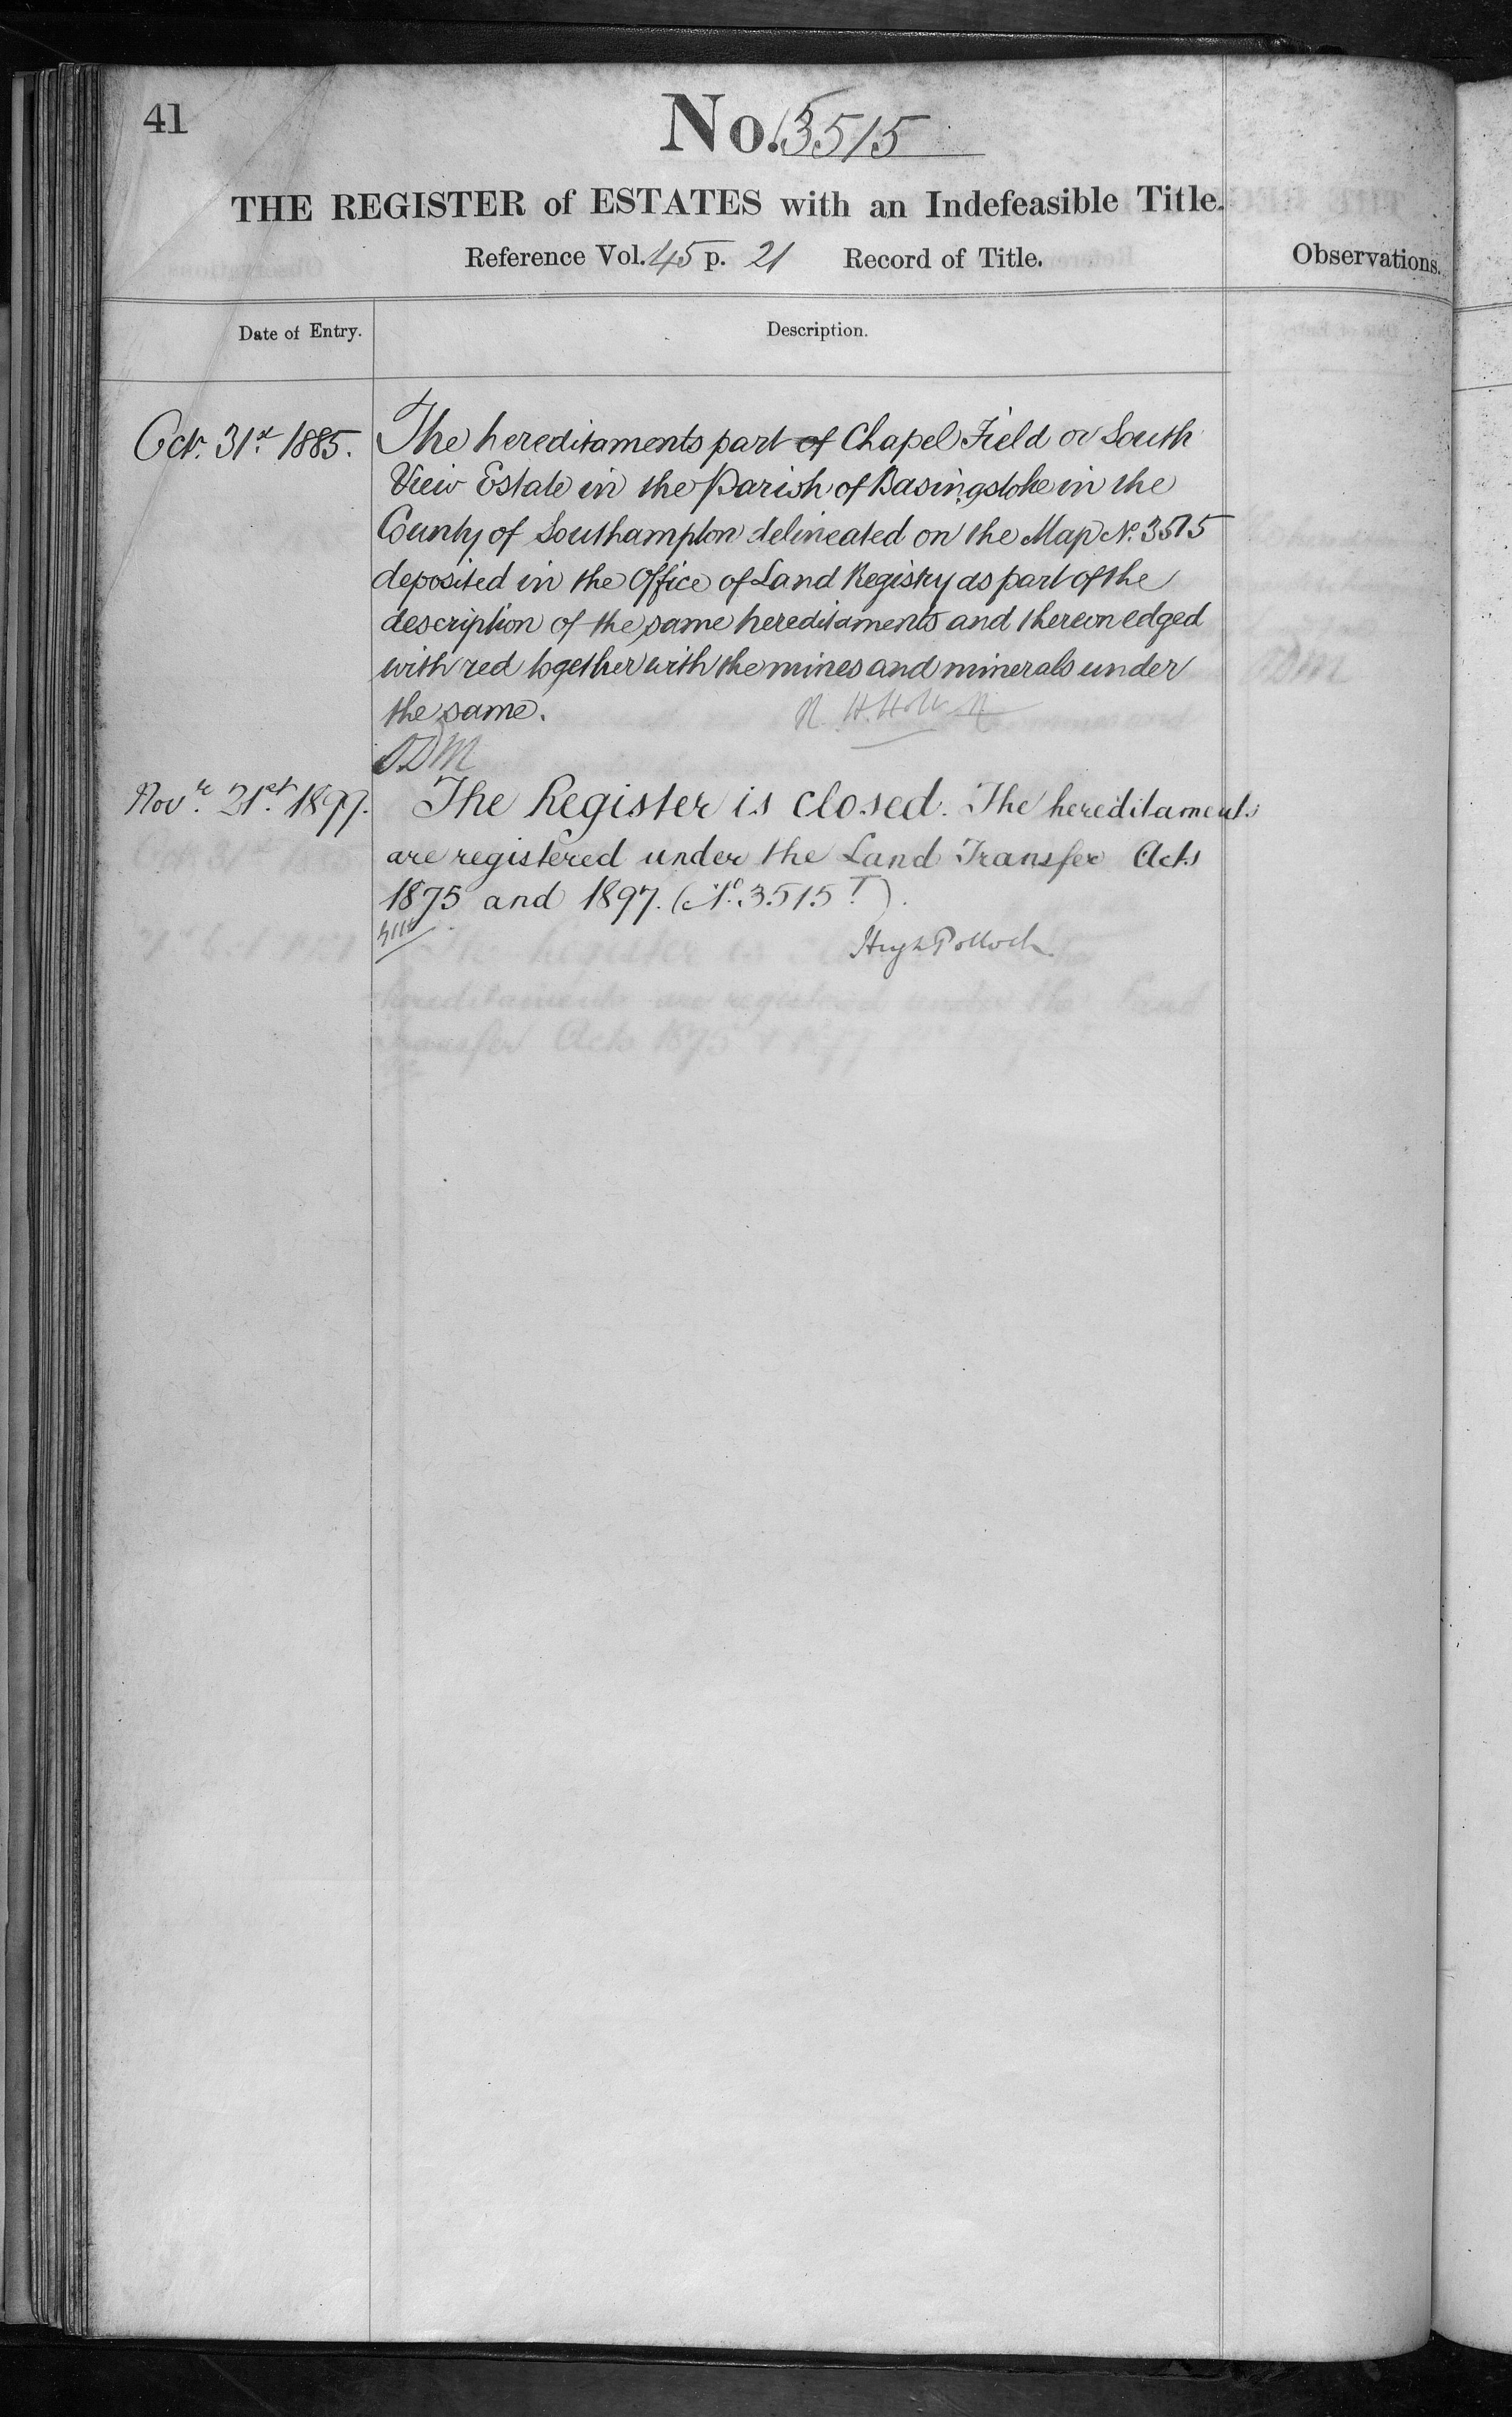 41
No. 3515
THE REGISTER of ESTATES with an Indefeasible Title.
Reference Vol. 45 p. 21 Record of Title.
Observations.
Date of Entry.
Description.
Oct. 31st 1885.
The hereditaments part of Chapel Field or South
View Estate in the Parish of Basingstoke in the
County of Southampton delineated on the Map No. 3515
deposited in the Office of Land Registry as part of the
description of the same hereditaments and thereon edged
with red together with the mines and minerals under
the same.
R. H. Holt
Novr. 21st. 1899.
The Register is closed. The hereditaments
are registered under the Land Transfer Acts
1875 and 1897. (No. 3515 T).
Hugh Pollock